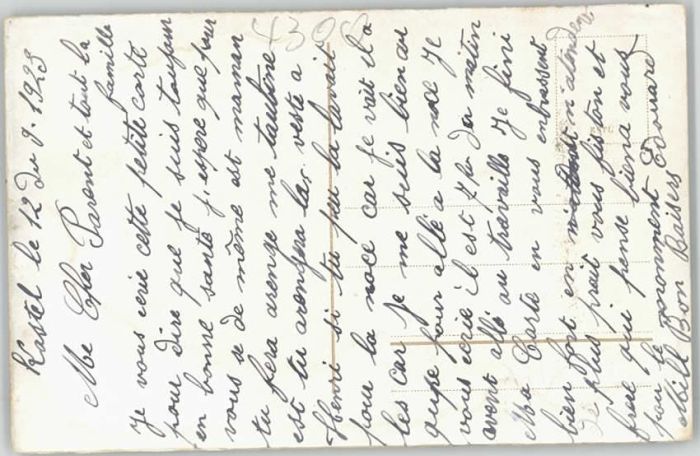 4308
Kastel le 12 du 9. 1923
Me Cher Parent et tout la
famille
Je vous ecrie cette petite carte
pour dire que je suis toujour
en bonne sante j. espere que pour
vous se de même est maman
tu fera arenge me
est tu arengera la veste a
Henri si tu peu la lavait
pour la noce car je vait il a
les car je me suis bien
pour allé a la noce Je
vous ecrie il est 7h du matin
avent allé au travaille Je fini
Ma Carte en vous enbrassent
bien fort en atendent
de plus prait vous fiston et
frere qui pense biena vous
par le Edouard
Mille Bon Baisers